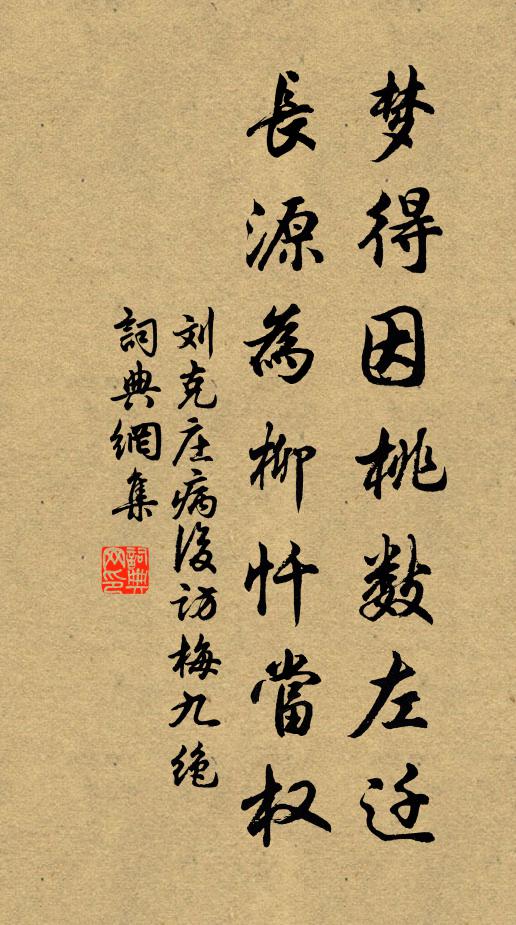 梦得因桃数左迁
長源為柳忤當权
刘克庄病後访梅九绝
詞典網集
詞典网印